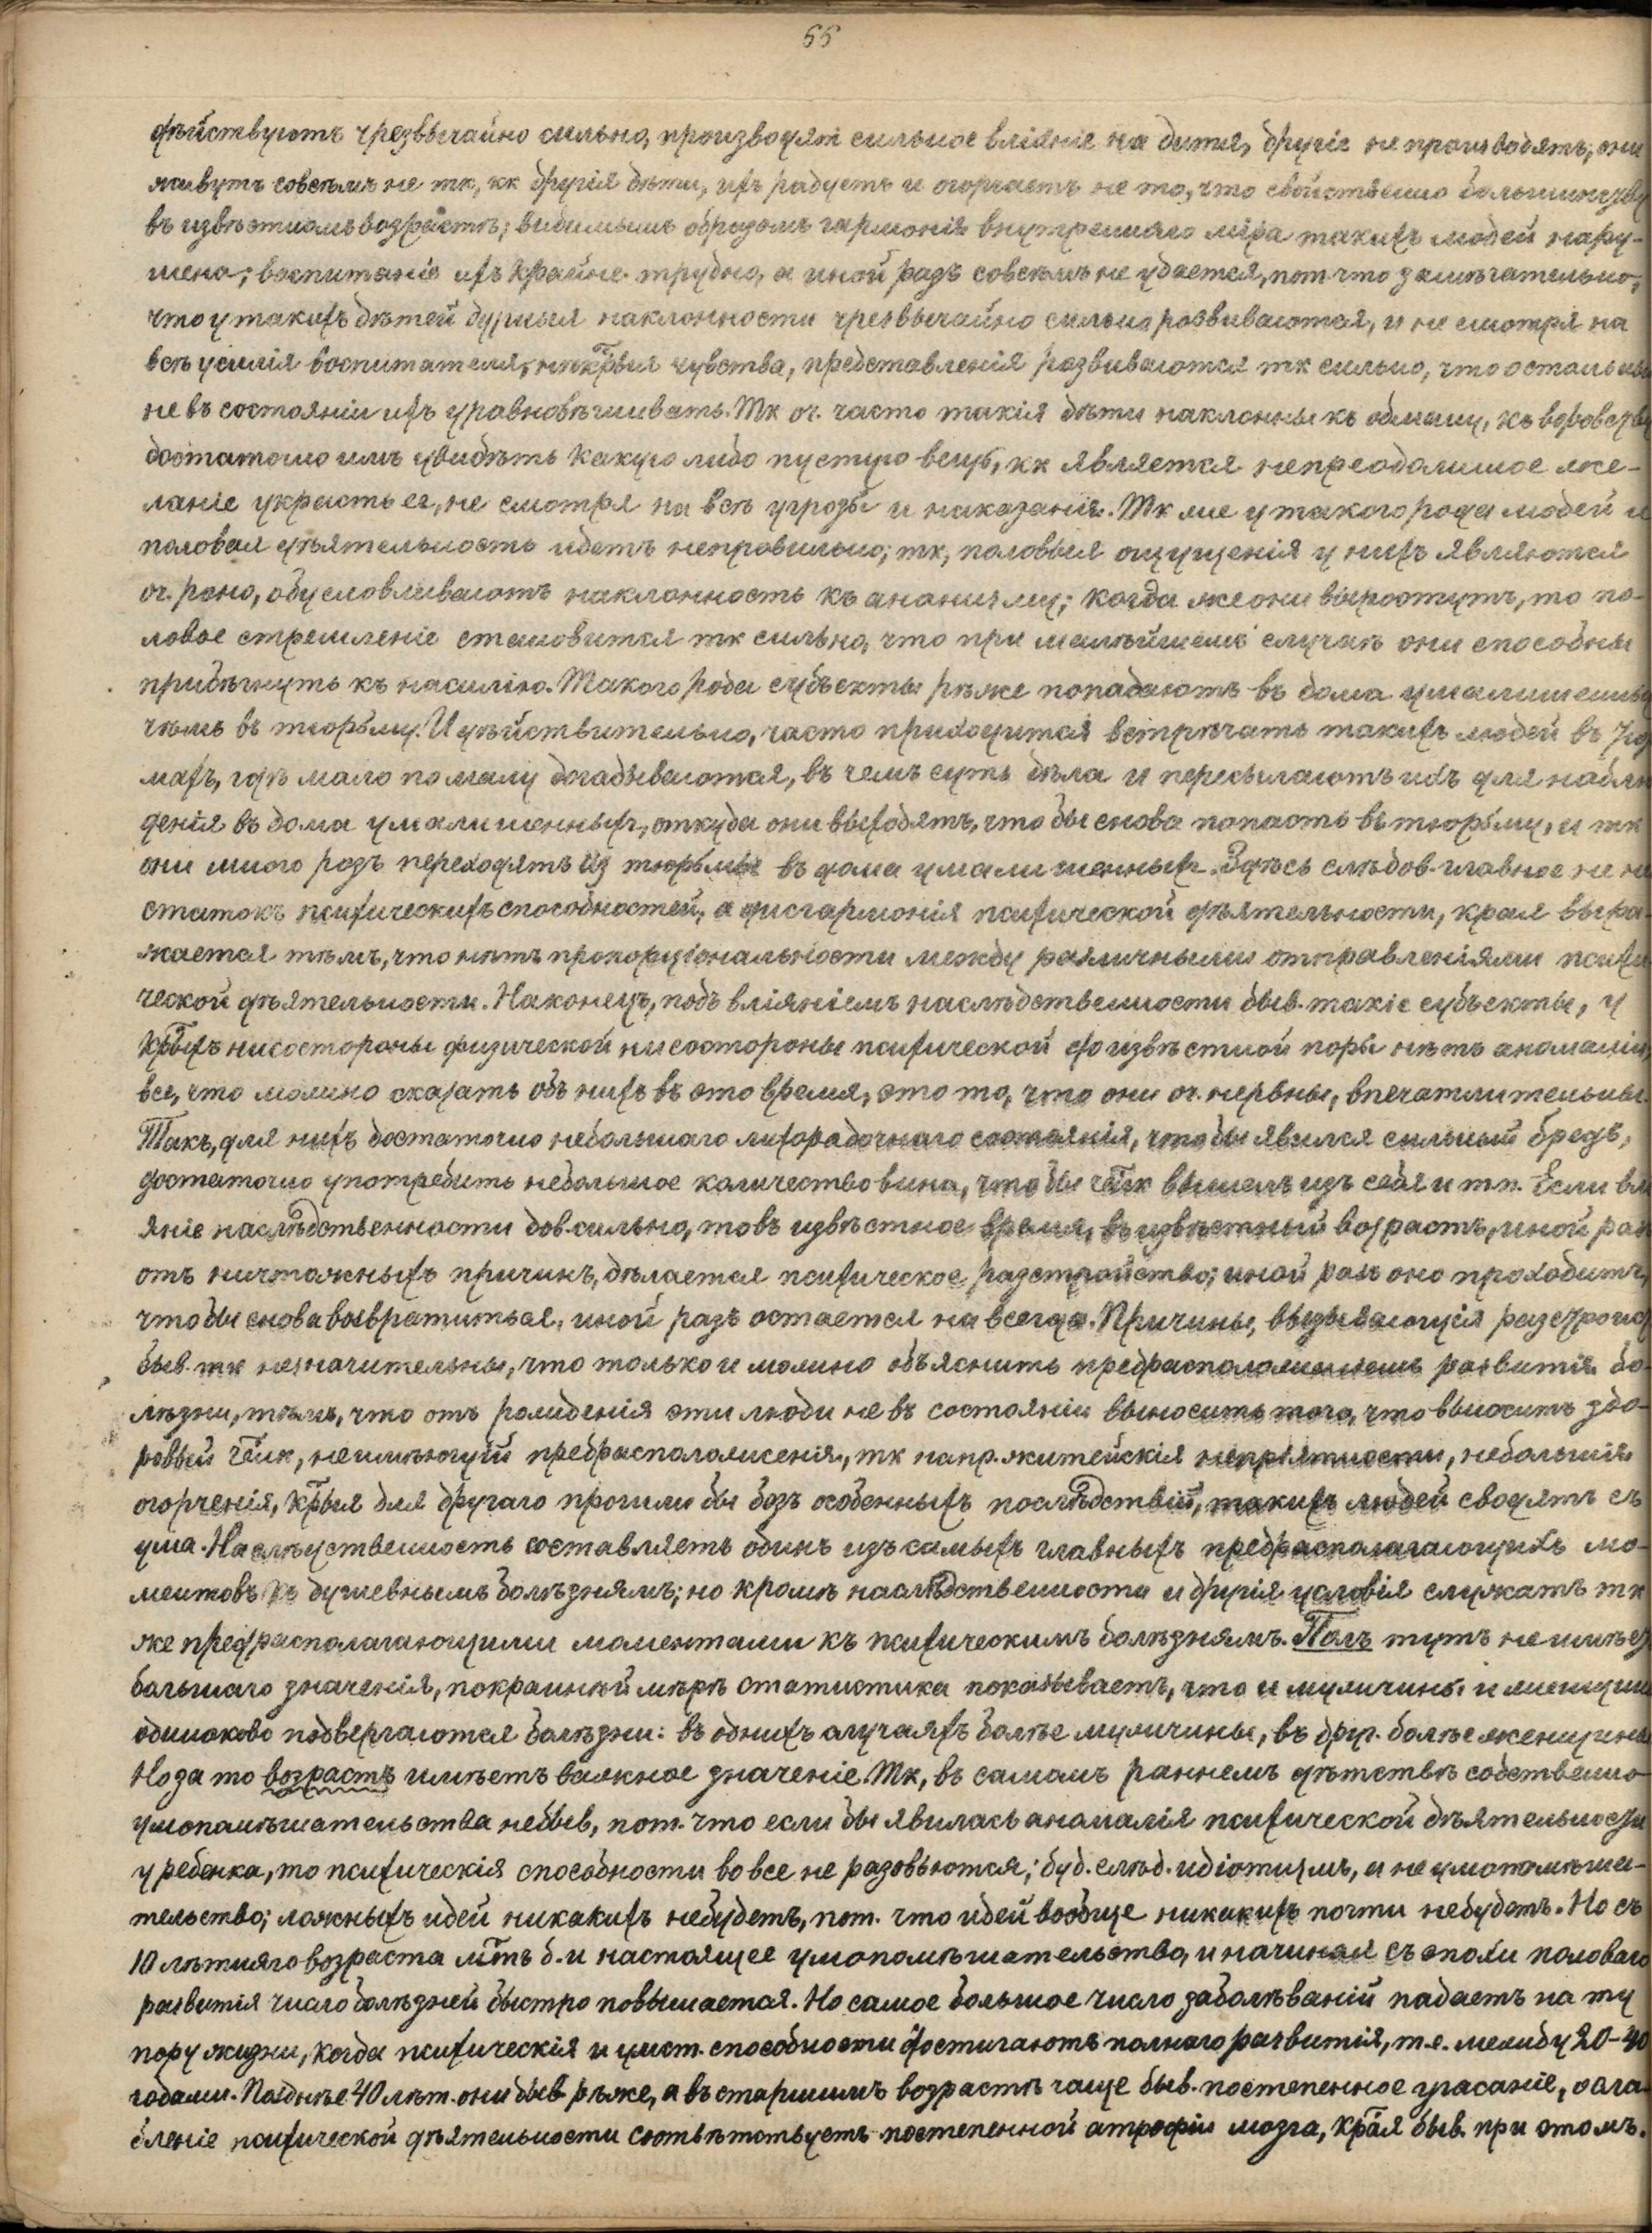 55
дѣйствуютъ чрезвычайно сильно, производят сильное вліяніе на дитя, другіе не производятъ; они
живутъ совсѣмъ не тк, кк другія дѣти, ихъ радуетъ и огорчаетъ не то, что свойственно большинству
въ извѣстномъ возрастѣ; видимымъ образомъ гармонія внутренняго міра такихъ людей нару-
шена; воспитаніе ихъ крайне трудно, а иной разъ совсѣмъ не удается, пот. что замѣчательно,
что у такихъ дѣтей дурныя наклонности чрезвычайно сильно развиваются, и не смотря на
всѣ усилія воспитателя, нѣкрыя чувства, представленія развиваются тк сильно, что остальныя
не въ состояніи ихъ уравновѣшивать. Тк оч. часто такія дѣти наклонны къ обману, къ воровству
достаточно имъ увидѣть какую либо пустую вещь, кк является непреодолимое же-
ланіе украсть ее, не смотря на всѣ угрозы и наказанія. Тк же у такого рода людей и
половая дѣятельность идетъ неправильно; тк, половыя ощущенія у нихъ являются
оч. рано, обусловливаютъ наклонность къ ананизму; когда же они выростутъ, то по-
ловое стремленіе становится тк сильно, что при малѣйшемъ случаѣ они способны
прибѣгнуть къ насилію. Такого рода субъекты рѣже попадаютъ въ дома умалишенныхъ
чѣмъ въ тюрьму. И дѣйствительно, часто приходится встрѣчать такихъ людей въ тюр
махъ, гдѣ мало по малу догадываются, въ чемъ суть дѣла и пересылаютъ ихъ для наблю
денія въ дома умалишенныхъ, откуда они выходятъ, что бы снова попасть въ тюрьму, и тк
они много разъ переходятъ из тюрьмы въ дома умалишенныхъ. Здѣсь слѣдов. главное не не
статокъ психическихъ способностей, а дисгармонія психической дѣятельности, края выра-
жается тѣмъ, что нѣтъ пропорціональности между различными отправленіями психи
ческой дѣятельности. Наконецъ, подъ вліяніемъ наслѣдственности быв. такіе субъекты, у
крыхъ ни со стороны физической ни со стороны психической до извѣстной поры нѣтъ аномаліи,
все, что можно сказать объ нихъ въ это время, это то, что они оч. нервны, впечатлительны.
Такъ, для нихъ достаточно небольшаго лихорадочнаго состоянія, что бы явился сильный бредъ,
достаточно употребить небольшое количество вина, что бы члк вышелъ изъ себя и т.п. Если влі
яніе наслѣдственности дов. сильно, то въ извѣстное время, въ извѣстный возрастъ, иной раз
отъ ничтожныхъ причинъ, дѣлается психическое разстройство; иной разъ оно проходитъ,
что бы снова возвратиться, иной разъ остается на всегда. Причины, вызывающія разстройс
быв. тк незначительны, что только и можно объяснить предрасположеніемъ развитія бо-
лѣзни, тѣмъ, что отъ рожденія эти люди не въ состояніи выносить того, что выноситъ здо-
ровый члк, неимѣющій предрасположенія, тк напр. житейскія непріятности, небольшія
огорченія, крыя для другаго прошли бы безъ особенныхъ послѣдствій, такихъ людей сводятъ съ
ума. Наслѣдственность составляетъ одинъ изъ самыхъ главныхъ предрасполагающихъ мо-
ментовъ къ душевнымъ болѣзнямъ; но кромѣ наслѣдственности и другія условія служатъ тк
же предрасполагающими моментами къ психическимъ болѣзнямъ. Полъ тутъ не имѣет
большаго значенія, покраинѣй мѣрѣ статистика показываетъ, что и мужчины и женщины
одинаково подвергаются болѣзни: въ однихъ случаяхъ болѣе мужчины, въ друг. болѣе женщины
Но за то возрастъ имѣетъ важное значеніе. Тк, въ самомъ раннемъ дѣтствѣ собственно
умопомѣшательства небыв, пот. что если бы явилась аномалія психической дѣятельности
у ребенка, то психическія способности вовсе не разовьются; буд. слѣд. идіотизмъ, а не умопомѣша-
тельство; ложныхъ идей никакихъ небудетъ, пот. что идей вообще никакихъ почти небудетъ. Но съ
10 лѣтняго возраста м͠тъ б. и настоящее умопомѣшательство, и начиная съ эпохи половаго
развитія число болѣзней быстро повышается. Но самое большое число заболѣваній падаетъ на ту
пору жизни, когда психическія и умст. способности достигаютъ полнаго развитія, т.е. между 20-40
годами. Позднѣе 40 лѣт. они быв рѣже, а въ старшимъ возрастѣ чаще быв. постепенное угасаніе, осла-
бленіе психической дѣятельности сотвѣтствуетъ постепенной атрофіи мозга, края быв. при этомъ.